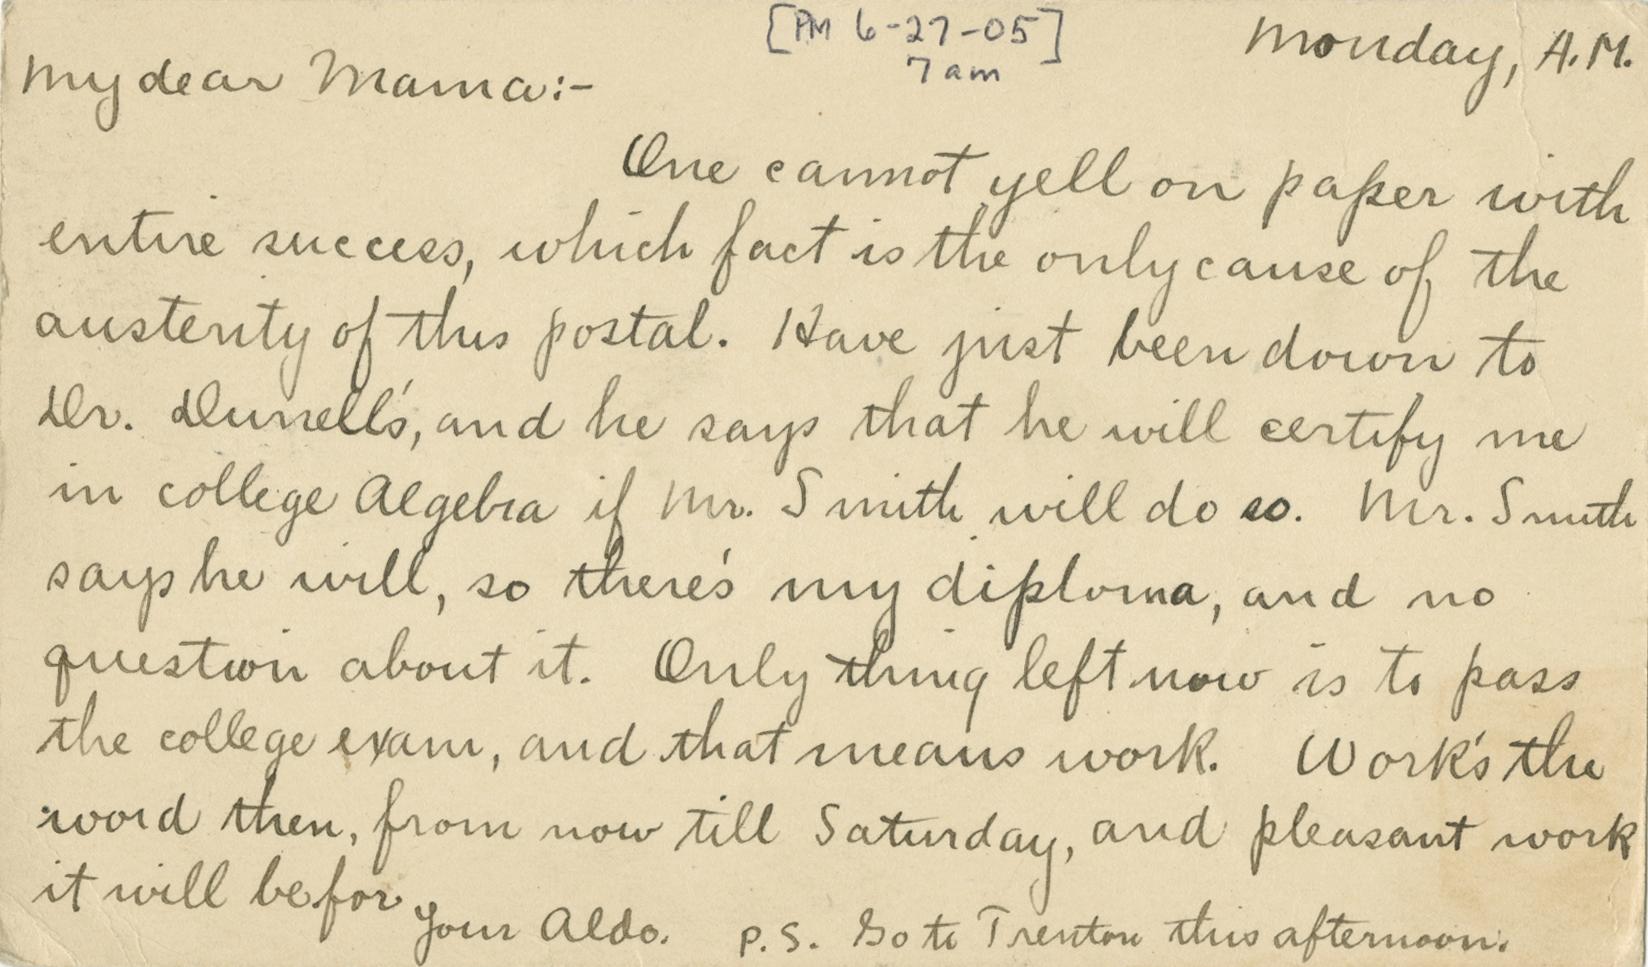 [PM 6-27-05]
7 am
Monday, A.M.
My dear Mama:-
One cannot yell on paper with
entire success, which fact is the only cause of the
austerity of this postal. Have just been down to
Dr. Dunell's, and he says that he will certify me
in college Algebra if Mr. Smith will do so. Mr. Smith
says he will, so there's my diploma, and no
question about it. Only thing left now is to pass
the college exam, and that means work. Work's the
word then, from now till Saturday, and pleasant work
it will be for
your Aldo. P.S. Go to Trenton this afternoon.